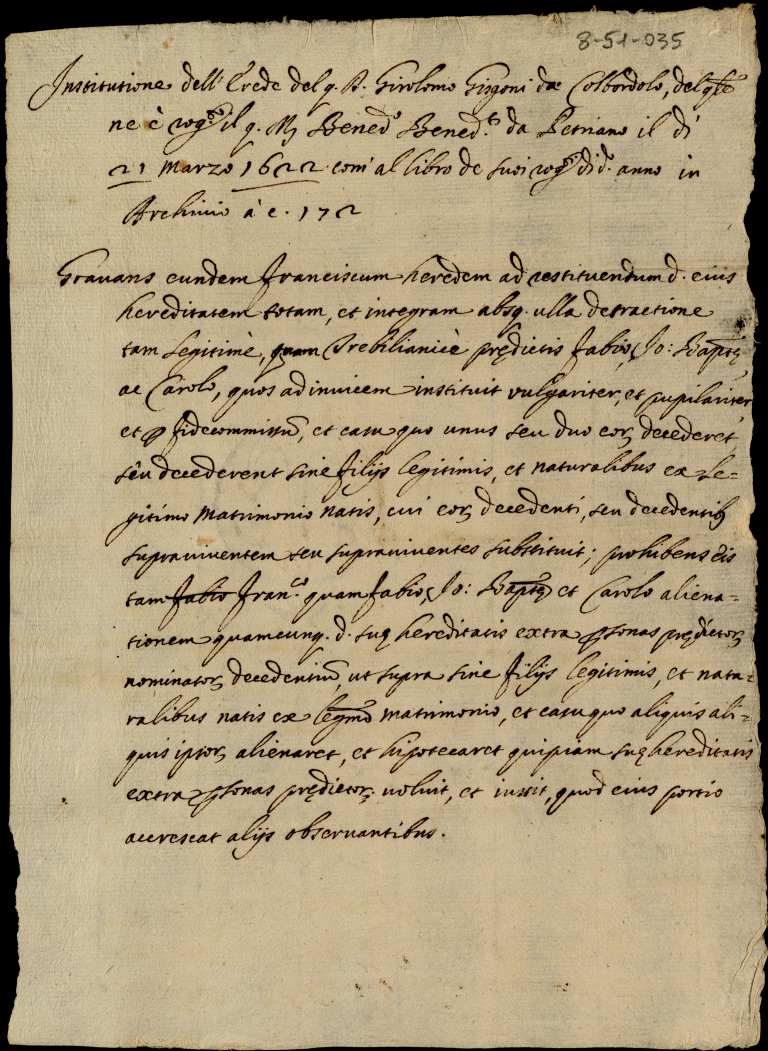 8-51-035
Institutione dell'Erede del q. D. Girolomo Gisgoni da Colbordolo, del qle
ne è rog.to il q. M Bened.o Bened.ti da Petriano il dì
21 Marzo 1622. com' al libro de suoi rog.ti di d.o anno in
Archivio à c. 172
Gravans eundem Franciscum heredem ad restituendum d. eius
hereditatem totam, et integram absq. ulla detractione
tam legitimè, quam Trebilianicè prędictis Fabio, Jo: Baptę
ac Carolo, quos ad invicem instituit vulgariter, et pupilariter,
et p fidecommissū, et casu quo unus seu duo eor, decederet,
sèu decederent sine filijs legitimis, et naturalibus ex le=
gitimo Matrimonio natis, cui eor, decedenti, seu decedentib,
supraviventem seu supraviventes substituit; prohibens eis
tam Fabio Fran.co quam Fabio, Jo: Baptę et Carolo aliena=
tionem quamcunq. d. suę hereditatis extra psonas prędictor,
nominator, decedentiū, ut supra sine filijs legitimis, et natu=
ralibus natis ex legmo Matrimonio, et casu quo aliquis ali=
quis iptor, alienaret, et hipotecaret quipiam suę hereditatis
extra psonas prędictor, voluit, et iussit, quod eius portio
accrescat alijs observantibus.